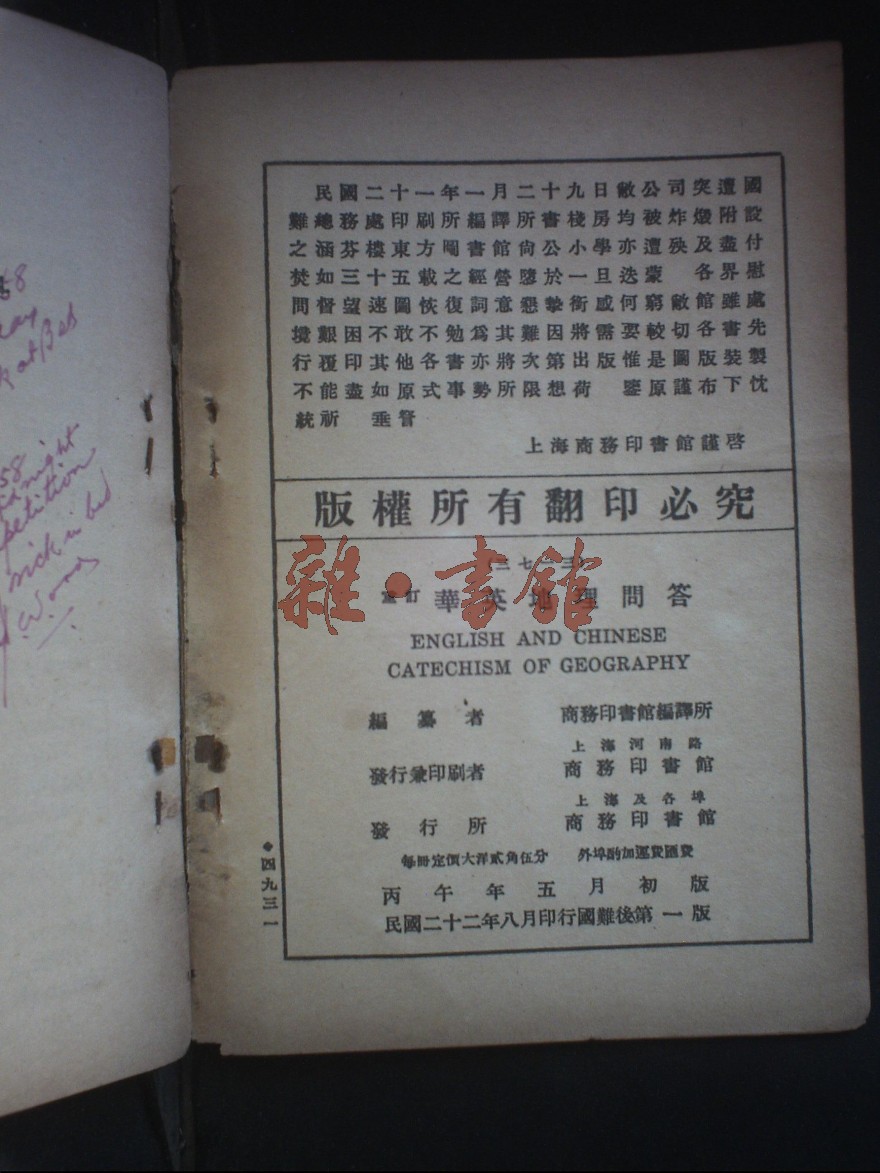 58
at Bed
58
night
petition
sick in bed
Woods
民國二十一年一月二十九日敝公司突遭國
難總務處印刷所編譯所書棧房均被炸燬附設
之涵芬樓東方圖書館尚公小學亦遭殃及盡付
焚如三十五載之經營隳於一旦迭蒙 各界慰
問督望速圖恢復詞意懇摯銜感何窮敝館雖處
境艱困不敢不勉爲其難因將需要較切各書先
行覆印其他各書亦將次第出版惟是圖版裝製
不能盡如原式事勢所限想荷 鑒原謹布下忱
統祈 垂詧
上海商務印書館謹啓
版權所有翻印必究
重訂 華英地理問答
雜·書館
ENGLISH AND CHINESE
CATECHISM OF GEOGRAPHY
編纂者 商務印書館編譯所
上海河南路
發行兼印刷者 商務印書館
上海及各埠
發行所 商務印書館
每冊定價大洋貳角伍分 外埠酌加運費匯費
丙午年五月初版
民國二十二年八月印行國難後第一版
◆四九三一